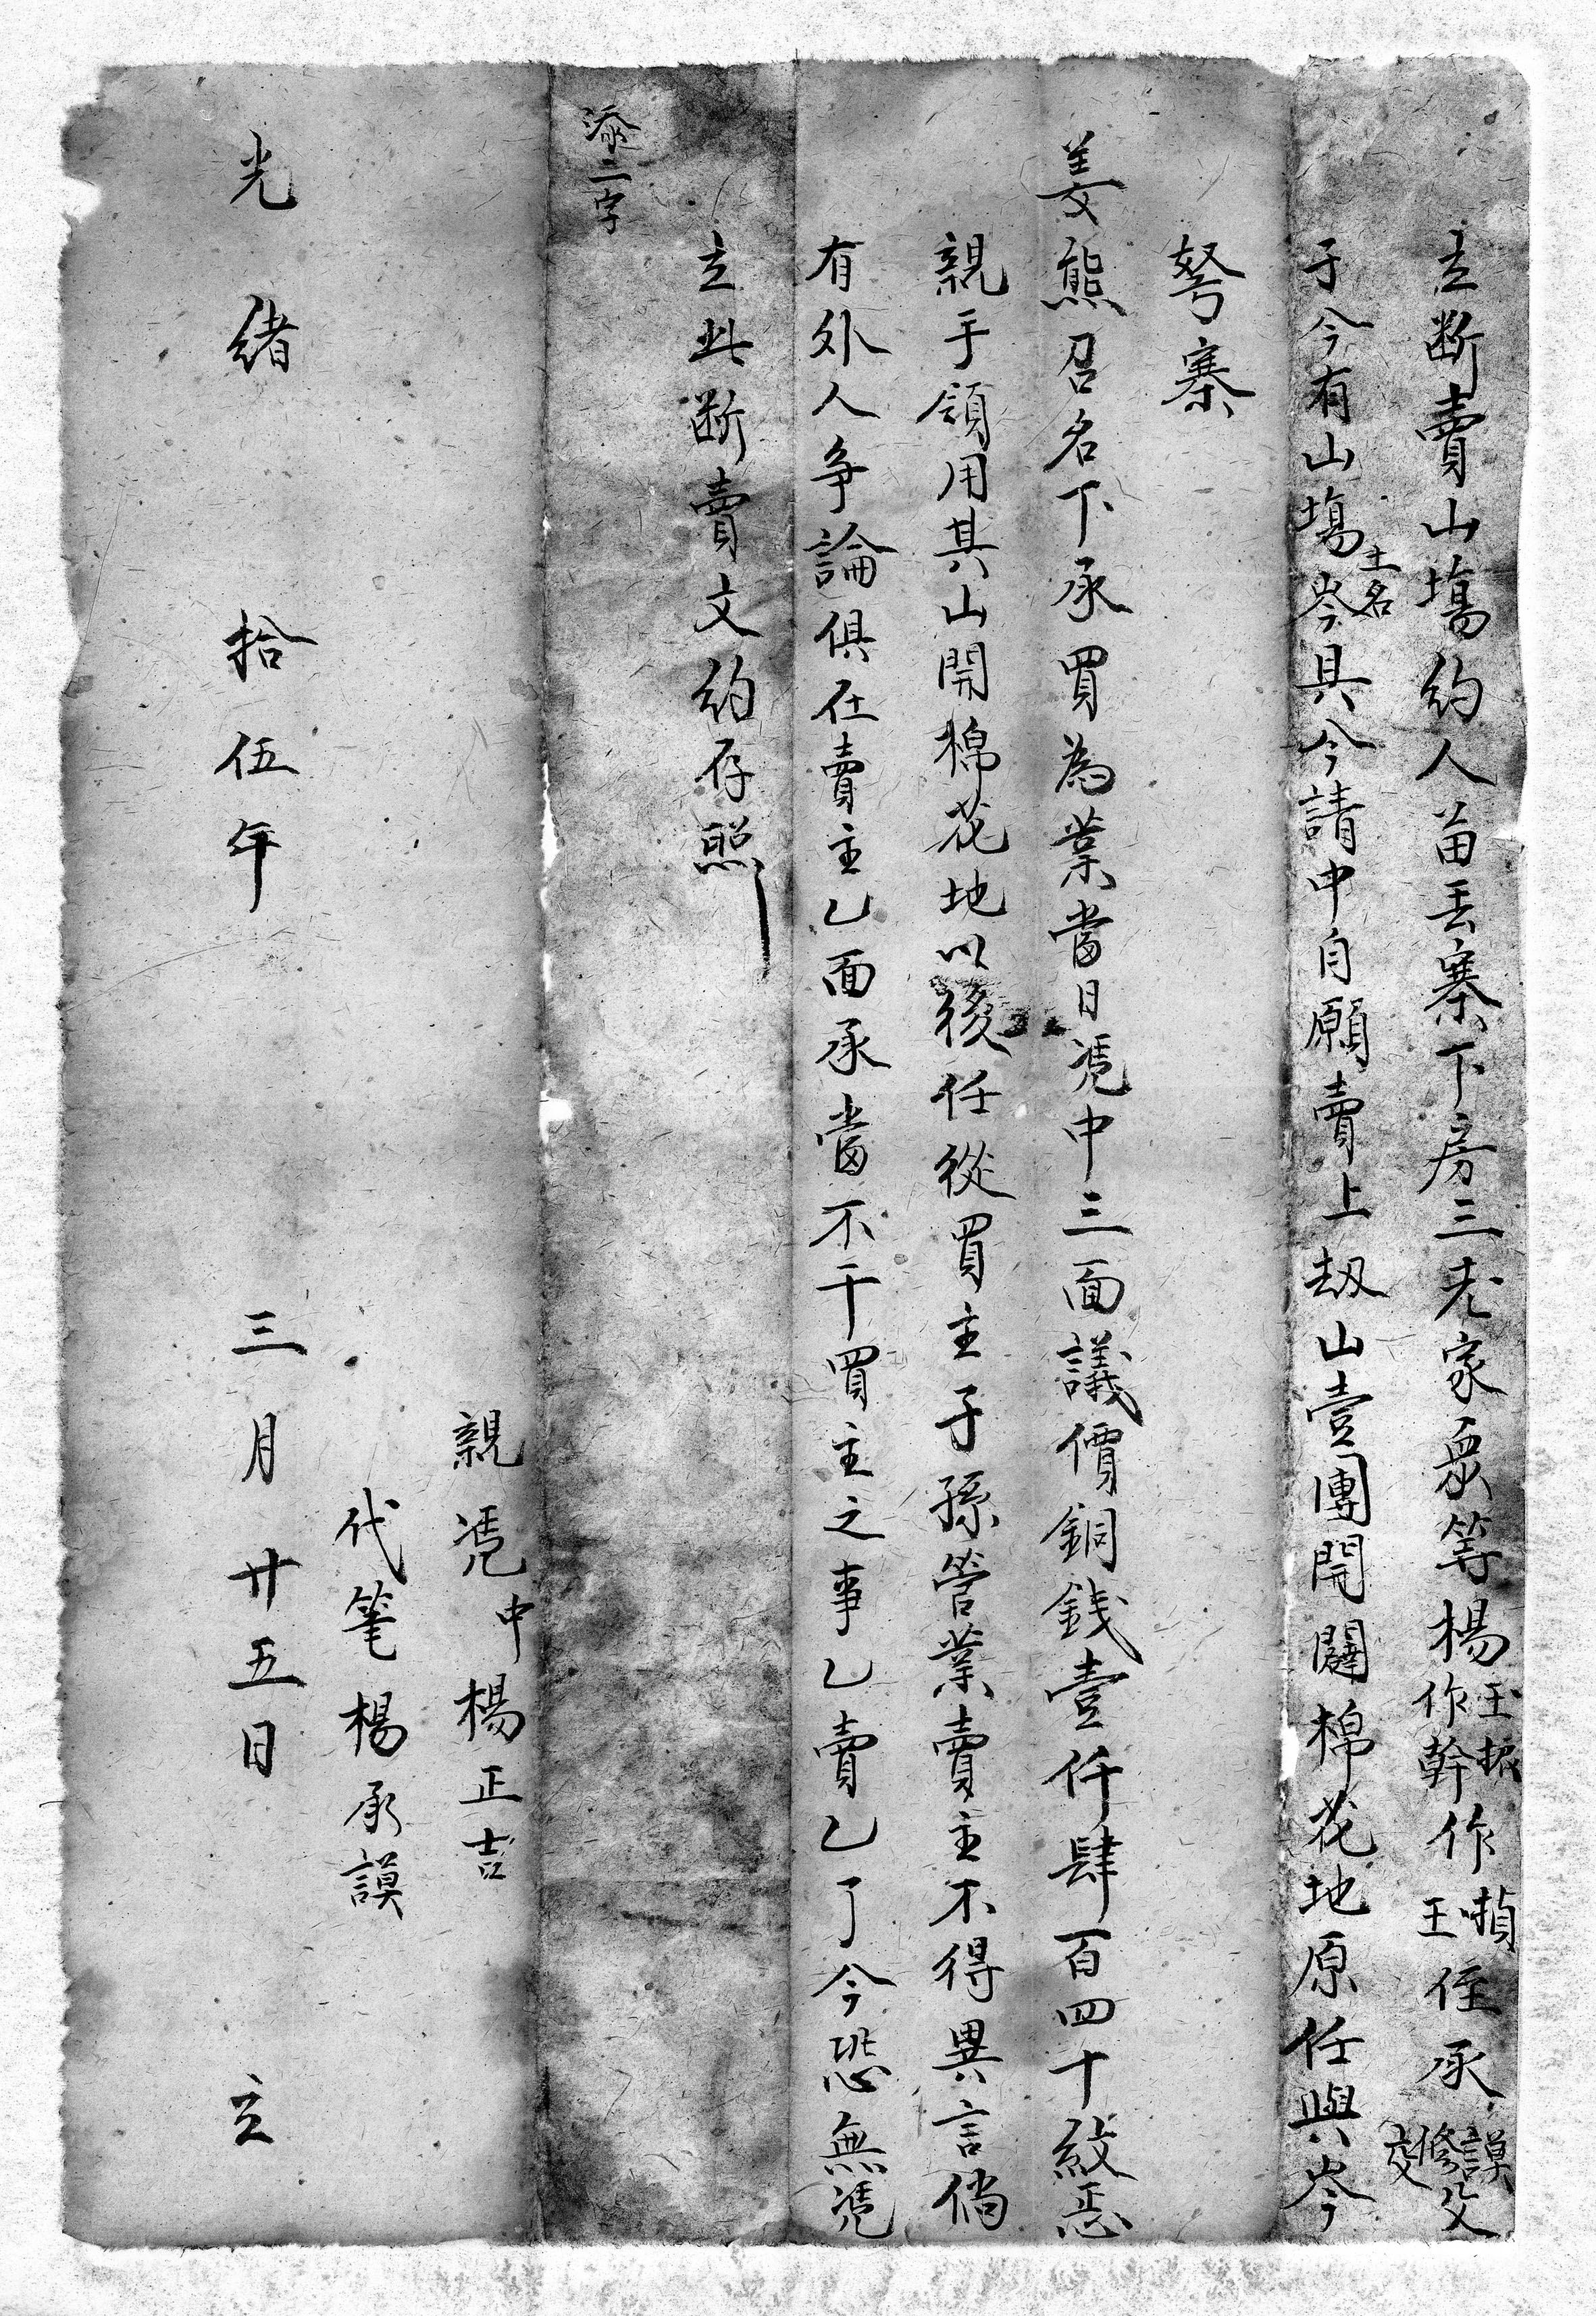 立断賣山塲約人苗丟寨下房三老家衆等楊玉振作幹作楨王侄承謨修交父
子今有山塲土名岑具今請中自願賣上刼山壹團開闢棉花地原任與岑
孥寨
姜熊召名下承買為業當日凭中三面議價銅錢壹仟肆百四十紋㤙
親手領用其山開棉花地以後任從買主子孫管業賣主不得異言倘
有外人争論俱在賣主乙面承當不干買主之事乙賣乙了今恐無凭
立此断賣文約存照
添二字
親凭中楊正吉
代筆楊承謨
光緒拾伍年三月廿五日立